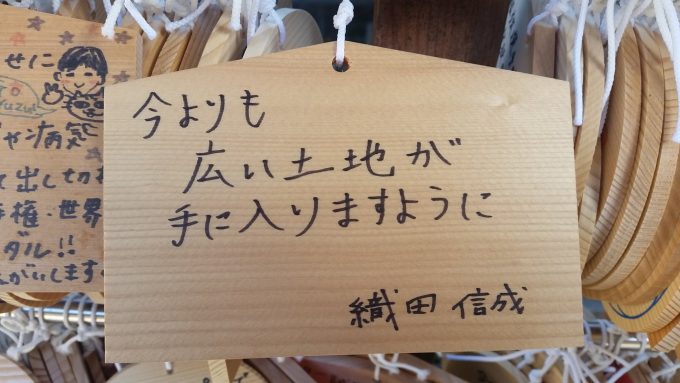 今よりも
広い土地が
手に入りますように
織田信成
せに
yuzu
病気
出し切
権・世界
ダル!!
がいします